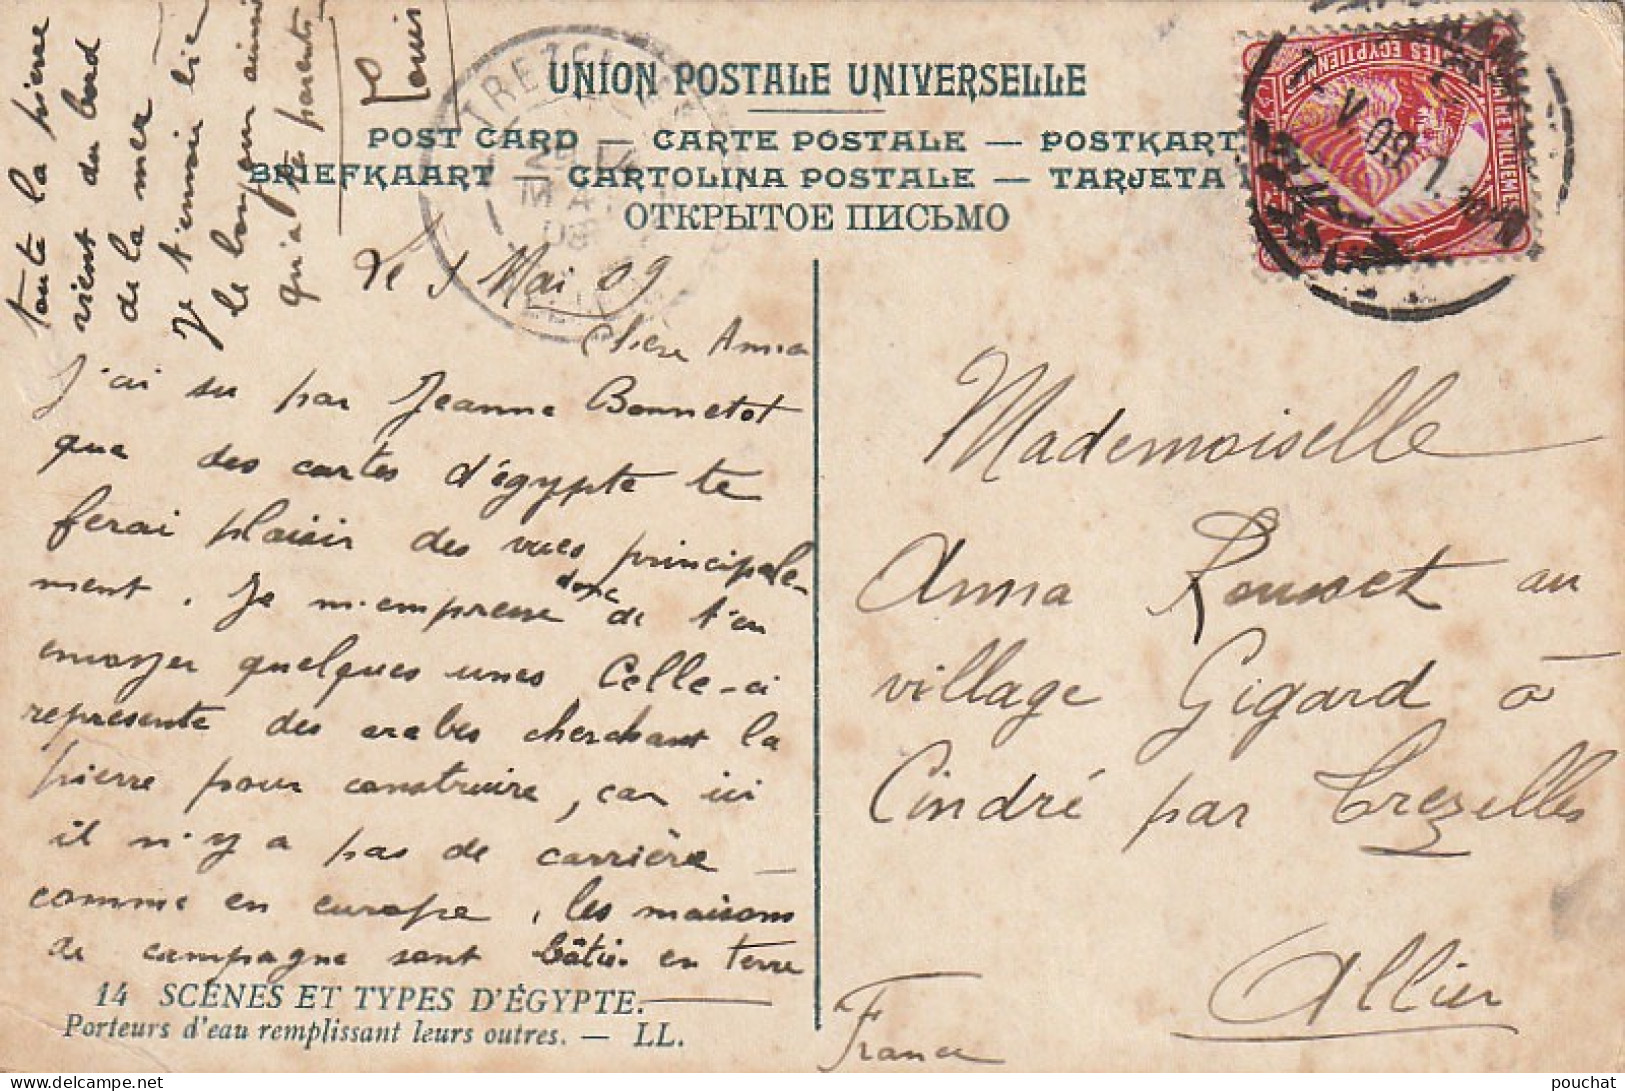 UNION POSTALE UNIVERSELLE
POST CARD — CARTE POSTALE — POSTKART
BRIEFKAART — CARTOLINA POSTALE — TARJETA
ОТКРЫТОЕ ПИСЬМО
TREZELLES
MAI
09
POSTES EGYPTIENNES
QUATRE MILLIEMES
V. 09
Le Mai 09
Chère Anna
J'ai su par Jeanne Bonnetot
que des cartes d'égypte te
ferai plaisir des vues principale-
ment. Je m'empresse donc de t'en
envoyer quelques unes Celle-ci
représente des arabes cherchant la
pierre pour construire, car ici
il n'y a pas de carrière
comme en europe, les maisons
de campagne sont bâtie en terre
toute la pierre
vient du bord
de la mer
Je t'envoie
le bonjour ainsi
qu'a tes parents
Louis
14 SCÈNES ET TYPES D'ÉGYPTE.
Porteurs d'eau remplissant leurs outres. — LL.
Mademoiselle
Anna Rousset au
village Gigard à
Cindré par Trezelles
Allier
France
pouchat